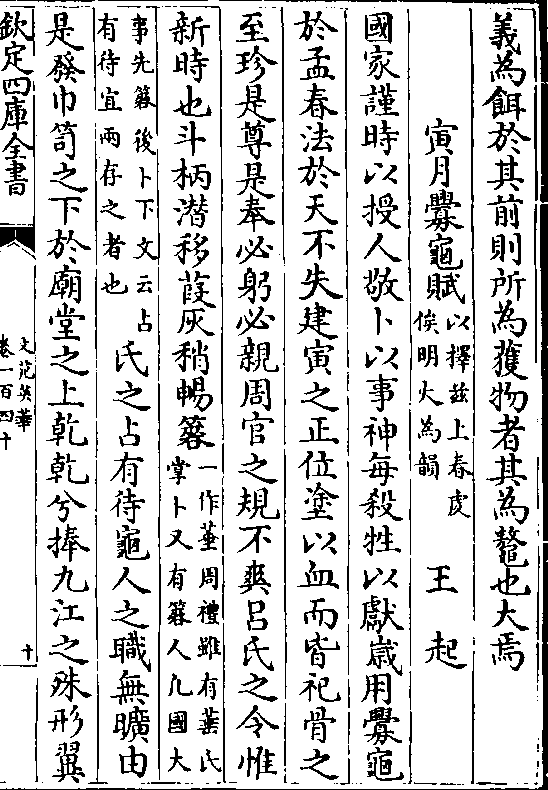 義為餌於其前則所為獲物者其為鼇也大焉
寅月釁龜賦以擇兹上春虔俟明大為韻 王起
國家謹時以授人敬卜以事神每殺牲以獻歲用釁龜
於孟春法於天不失建寅之正位塗以血而皆祀骨之
至珍是尊是奉必躬必親周官之規不爽吕氏之令惟
新時也斗柄潛移葭灰稍暢簭一作菙周禮雖有菙氏掌卜又有簭人凡國大
事先簭後卜下文云占有待宜兩存之者也氏之占有待龜人之職無曠由
是發巾笥之下於廟堂之上乾乾兮捧九江之殊形翼
欽定四庫全書
文苑英華
卷一百四十
十